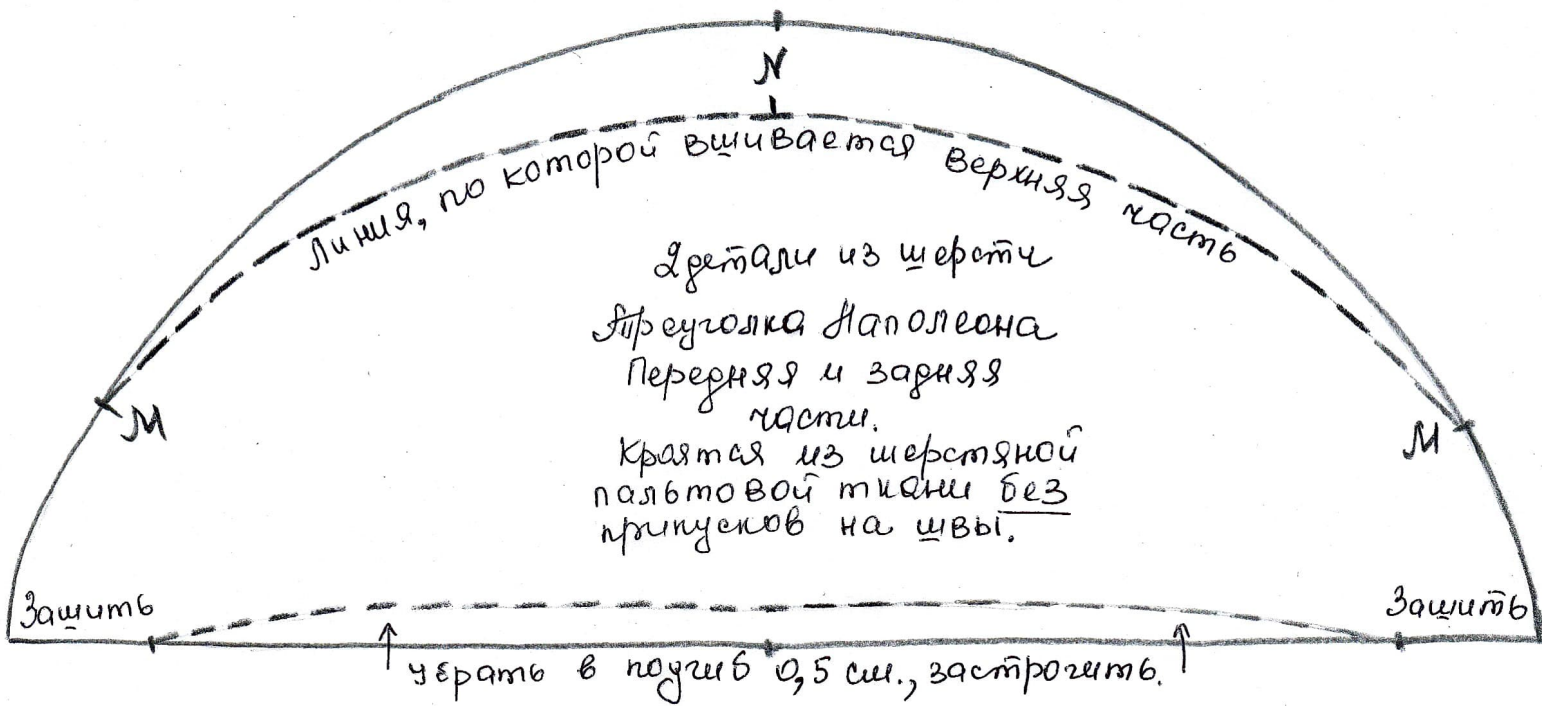 N
Линия, по которой вшивается верхняя часть
2 детали из шерсти
Треуголка Наполеона
Передняя и задняя
части.
Кроятся из шерстяной
пальтовой ткани без
припусков на швы.
M
M
Зашить
Зашить
Убрать в подгиб 0,5 см., застрочить.